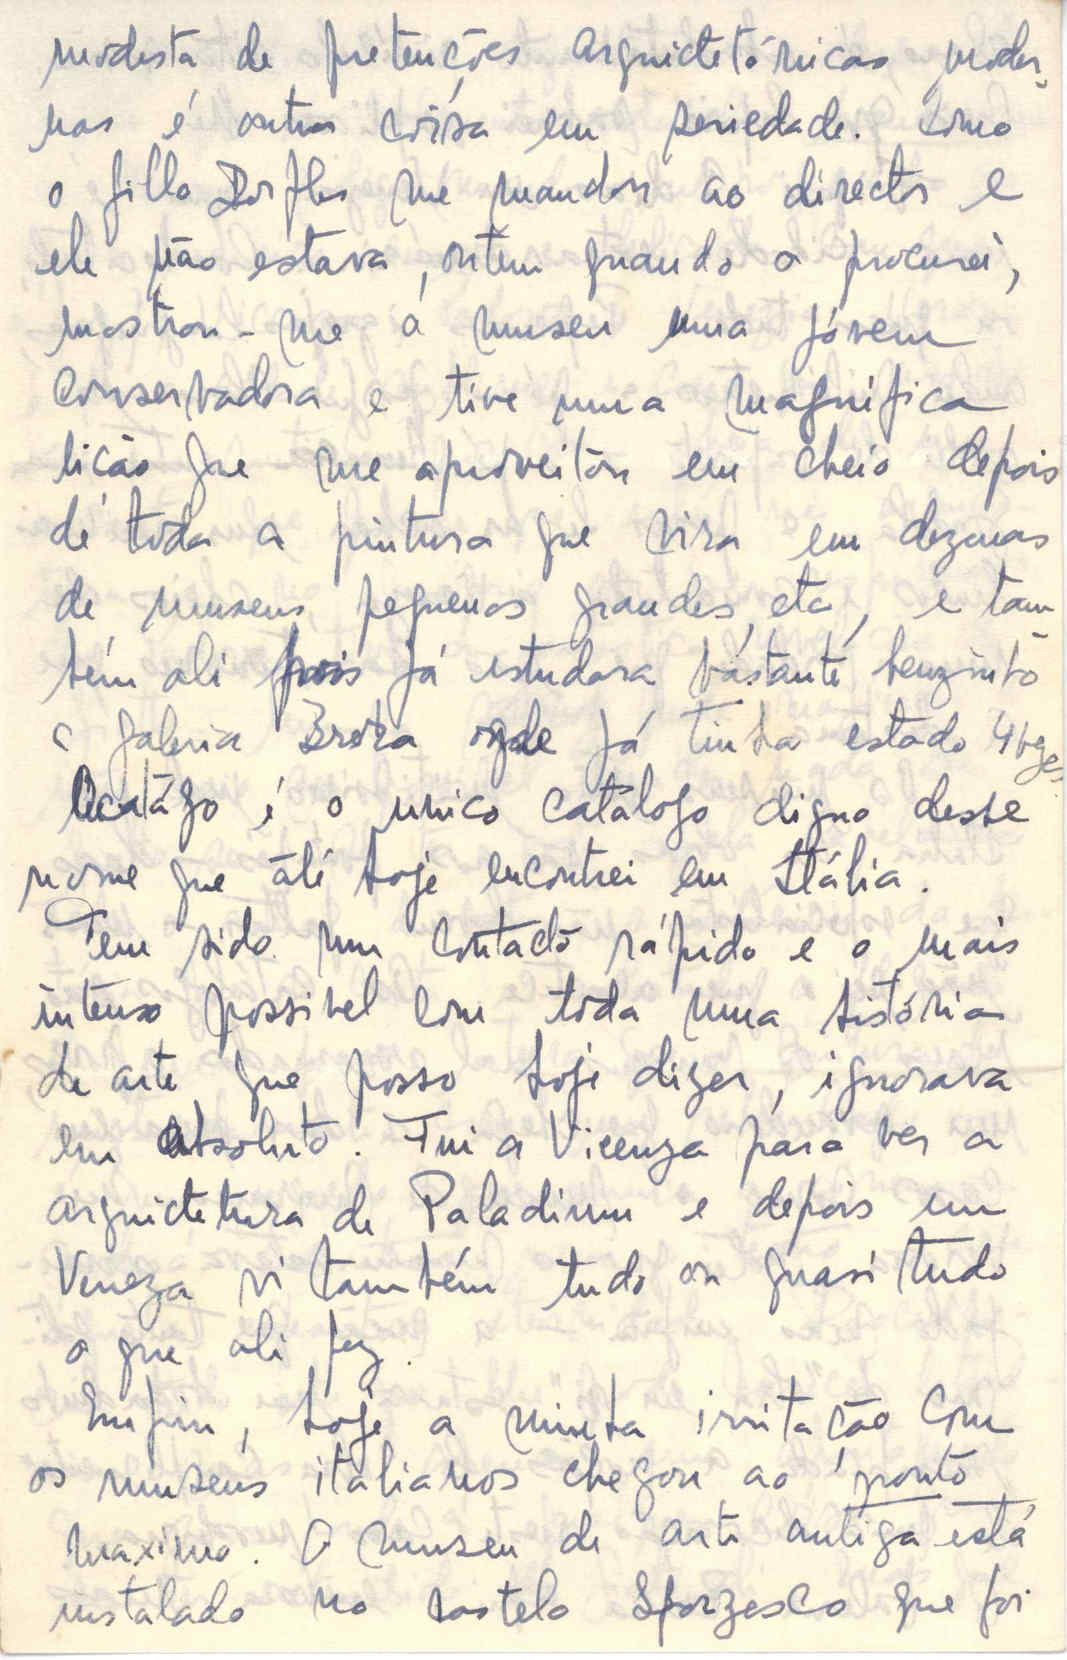 modesta de pretenções arquictetónicas moder-
nas é outra coisa em seriedade. Como
o Gillo Dorfles me mandou ao director e
ele não estava, ontem quando o procurei,
mostrou-me o museu uma jóvem
conservadora e tive uma magnífica
lição que me aproveitou em cheio depois
de toda a pintura que vira em dezenas
de museus pequenos grandes, etc, e tam
bém ali pois já estudara bastante bemzinho
a galeria Brera onde já tinha estado 4 vezes
O catágo é o unico catálogo digno desse
nome que até hoje encontrei em Itália.
Tem sido um contacto rápido e o mais
intenso possivel com toda uma história
de arte que posso hoje dizer, ignorava
em absoluto. Fui a Vicenza para ver a
arquictetura de Paladium e depois em
Veneza vi tambtém tudo ou quasi tudo
o que ali fez.
Emfim, hoje a minha irritação com
os museus italianos chegou ao ponto
maximo. O museu de arte antiga está
instalado no castelo Sforzesco que foi